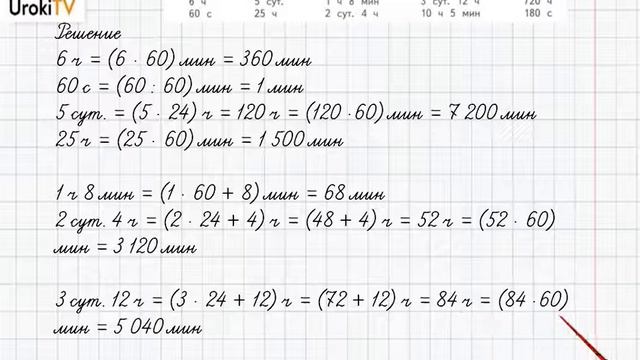 UrokiTV
6 ч 5 сут. 1 ч 8 мин 3 сут. 12 ч 720 ч
60 с 25 ч 2 сут. 4 ч 10 ч 5 мин 180 с
Решение
6 ч = (6 · 60) мин = 360 мин
60 с = (60 : 60) мин = 1 мин
5 сут. = (5 · 24) ч = 120 ч = (120 · 60) мин = 7 200 мин
25 ч = (25 · 60) мин = 1 500 мин
1 ч 8 мин = (1 · 60 + 8) мин = 68 мин
2 сут. 4 ч = (2 · 24 + 4) ч = (48 + 4) ч = 52 ч = (52 · 60)
мин = 3 120 мин
3 сут. 12 ч = (3 · 24 + 12) ч = (72 + 12) ч = 84 ч = (84 · 60)
мин = 5 040 мин